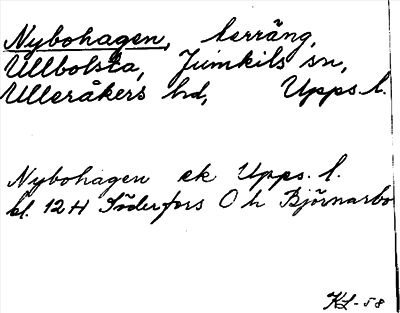 Nybohagen, terräng,
Ullbolsta, Jumkils sn,
Ulleråkers hd, Upps. l.
Nybohagen ek Upps. l.
bl. 12 H Söderfors O h Björnarbo
KL-58